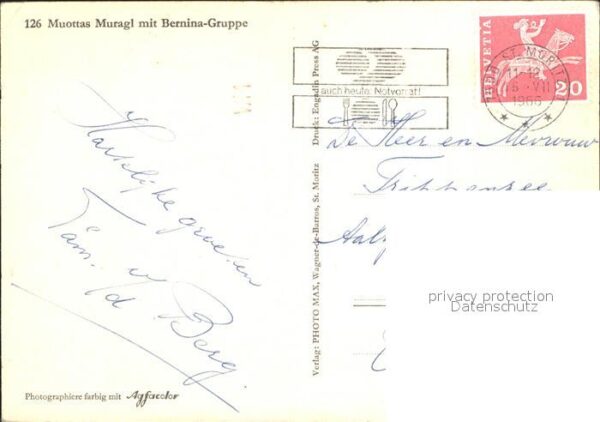 126 Muottas Muragl mit Bernina-Gruppe
Hartelijke groeten
Fam. v/d Berg.
Photographiere farbig mit Agfacolor
Verlag: PHOTO MAX, Wagner-de-Barros, St. Moritz Druck: Engadin Press AG
auch heute: Notvorrat!
ST. MORITZ
VII
HELVETIA
20
De Heer en Mevrouw
privacy protection
Datenschutz